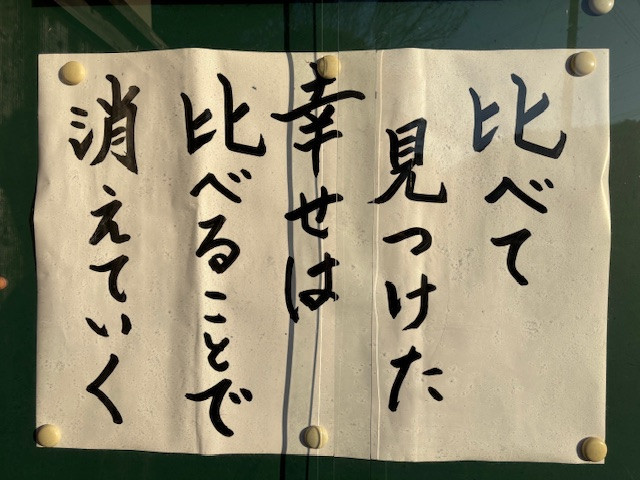 比べて
見つけた
幸せは
比べることで
消えていく